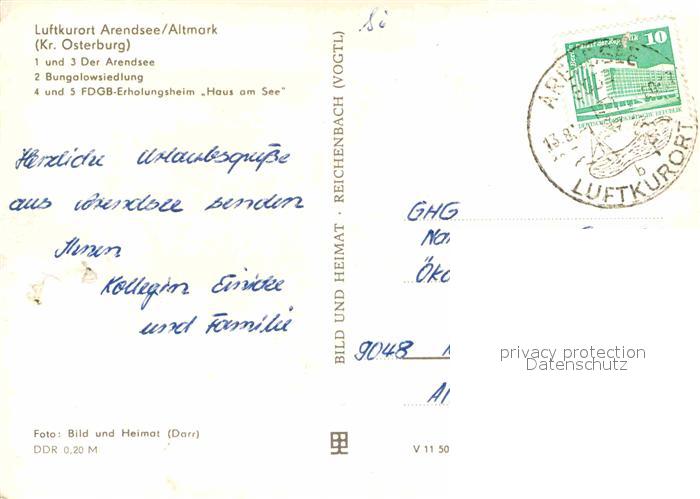 Luftkurort Arendsee/Altmark
(Kr. Osterburg)
1 und 3 Der Arendsee
2 Bungalowsiedlung
4 und 5 FDGB-Erholungsheim „Haus am See"
Herzliche Urlaubsgrüße
aus Arendsee senden
Ihnen
Kollegin
und Familie
Foto: Bild und Heimat (Darr)
DDR 0,20 M
BILD UND HEIMAT · REICHENBACH (VOGTL)
10
ARENDSEE
13.8.
b
LUFTKURORT
GHG
Öko
9048
V 11 50
privacy protection
Datenschutz